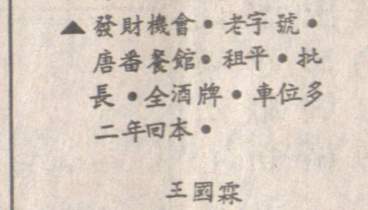 ▲發財機會•老字號•
唐番餐館•租平•批
長•全酒牌•車位多
二年回本•
王國霖